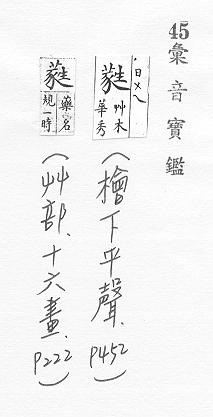 45
彙音寶鑑
蕤 艸木華秀 ·ㄖㄨㄟ
(檜下平聲、P452)
蕤 藥名 規一時
(艸部、十六畫、P222)